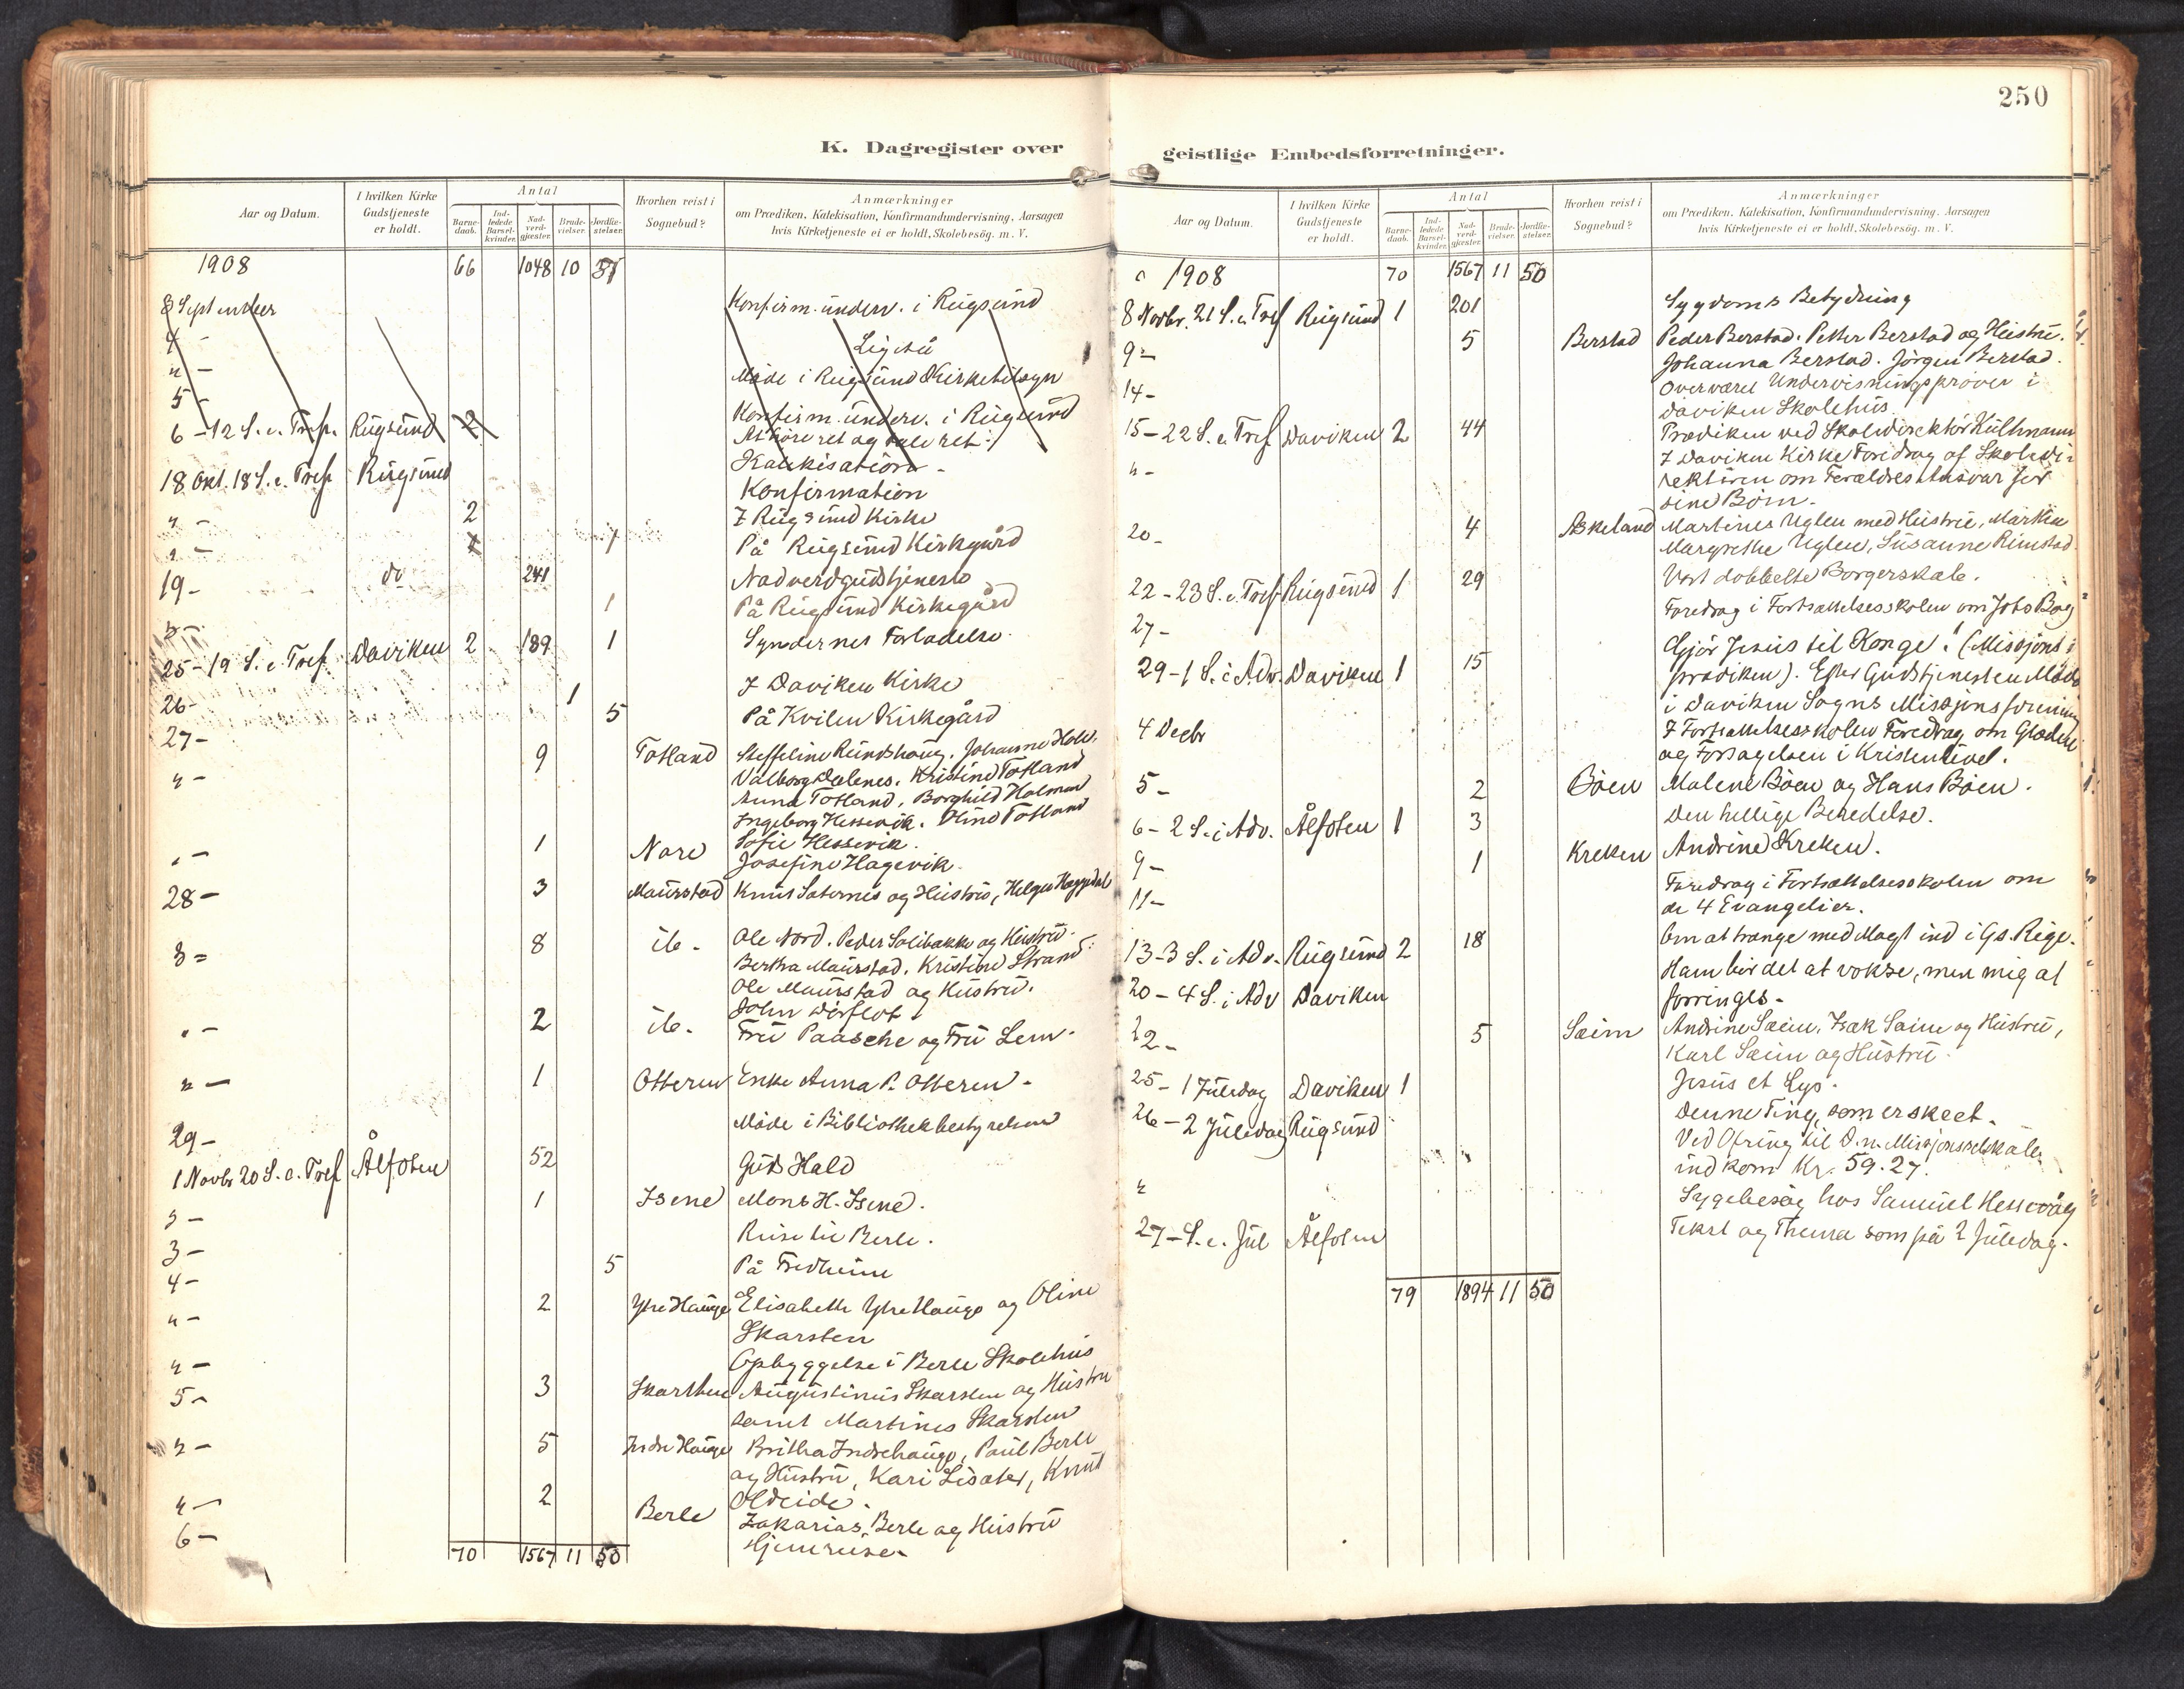 250
K. Dagregister over geistlige Embedsforretninger.
Aar og Datum. I hvilken Kirke Gudstjeneste er holdt. Antal Barnedaab. Indledede Barselkvinder. Nadverdgjæster. Brudevielser. Jordfæstelser. Hvorhen reist i Sognebud? Anmærkninger om Prædiken, Katekisation, Konfirmandundervisning, Aarsagen hvis Kirketjeneste ei er holdt, Skolebesøg. m. V.
1908 66 1048 10 37
3 September Konfirm. underv. i Rugsund
4 - Ligeså
" - Møde i Rugsund Kirketilsyn
5 - Konfirm. underv. i Rugsund
6 - 12 S. e. Tref. Rugsund 2 At høre ret og tale ret.
Katekisation -
18 Okt. 18 S. e. Tref Rugsund Konfirmation
" - 2 I Rugsund Kirke
" - 1 På Rugsund Kirkegård
19 - do 241 Nadverdgudstjeneste
" - 1 På Rugsund Kirkegård
25 - 19 S. e. Tref Daviken 2 189 1 Syndernes Forladelse.
26 - 1 I Daviken Kirke
27 - 5 På Kvilen Kirkegård
" - 9 Totland Steffeline Rundshaug. Johanne Hole.
Valborg Dalenes. Kristine Totland
Anna Totland, Borghild Holmen
Ingeborg Hessevik. Oline Totland
Sofie Hessevik.
" - 1 Nore Josefine Hagevik.
28 - 3 Maurstad Knut Saternes og Hustru, Helger Heggedal
" - 8 ib. Ole Nord. Peder Solibakke og Hustru.
Bertha Maurstad. Kristine Strand.
Ole Maurstad og Hustru.
John Dørflot.
" - 2 ib. Fru Paasche og Fru Lem.
" - 1 Otteren Enke Anna P. Otteren.
29 - Møde i Bibliothekbestyrelsen
1 Novbr 20 S. e. Tref Ålfoten 52 Guds Hald
" - 1 Isene Mons H. Isene.
3 - Reise til Berle.
4 - 5 På Fredheim
" - 2 Ytre Hauge Elisabeth Ytre Hauge og Oline
Skarsten
" - Opbyggelse i Berle Skolehus
5 - 3 Skarsten Augustinus Skarsten og Hustru
samt Martines Skarsten
" - 5 Indre Hauge Britha Indrehauge, Paul Berle
og Hustru, Kari Lisæter, Knut
Oldeide.
" - 2 Berle Zakarias Berle og Hustru
6 - Hjemreise.
70 1567 11 50
Aar og Datum. I hvilken Kirke Gudstjeneste er holdt. Antal Barnedaab. Indledede Barselkvinder. Nadverdgjæster. Brudevielser. Jordfæstelser. Hvorhen reist i Sognebud? Anmærkninger om Prædiken, Katekisation, Konfirmandundervisning, Aarsagen hvis Kirketjeneste ei er holdt, Skolebesøg. m. V.
1908 70 1567 11 50
8 Novbr. 21 S. e. Tref Rugsund 1 201 Sygdoms Betydning
9 - 5 Berstad Peder Berstad. Petter Berstad og Hustru.
Johanna Berstad. Jørgen Berstad.
14 - Overværet Undervisningsprøver i
Daviken Skolehus.
15 - 22 S. e. Tref Daviken 2 44 Prædiken ved Skoledirektør Kullmann
" - I Daviken Kirke Foredrag af Skoledi-
rektøren om Forældres Ansvar for
sine Børn.
20 - 4 Askeland Martines Uglen med Hustru, Marthe
Margrethe Uglen, Susanne Rimstad.
22 - 23 S. e. Tref Rugsund 1 29 Vort dobbelte Borgerskab.
27 - Foredrag i Fortsættelsesskolen om Jobs Bog
29 - 1 S. i Adv. Daviken 1 15 Gjør Jesus til Konge! (Missjons-
prædiken). Efter Gudstjenesten Møde
i Daviken Sogns Missjonsforening
4 Decbr I Fortsættelsesskolen Foredrag om Glæden
og Forsagelsen i Kristenlivet.
5 - 2 Bøen Malene Bøen og Hans Bøen.
6 - 2 S. i Adv. Ålfoten 1 3 Den hellige Beredelse.
9 - 1 Kreken Andrine Kreken.
11 - Foredrag i Fortsættelsesskolen om
de 4 Evangelier.
13 - 3 S. i Adv. Rugsund 2 18 Om at trænge med Magt ind i Gs. Rige.
20 - 4 S. i Adv Daviken Ham bør det at vokse, men mig at
forringes -
22 - 5 Sæim Andrine Sæim, Isak Sæim og Hustru,
Karl Sæim og Hustru.
25 - 1 Juledag Daviken 1 Jesus et Lys.
26 - 2 Juledag Rugsund Denne Ting, som er skeet.
Ved Ofring til D. n. Missjonsselskab
indkom Kr. 59.27.
" Sygebesøg hos Samuel Hessevåg
27 - S. e. Jul Ålfoten Tekst og Thema som på 2 Juledag.
79 1894 11 50